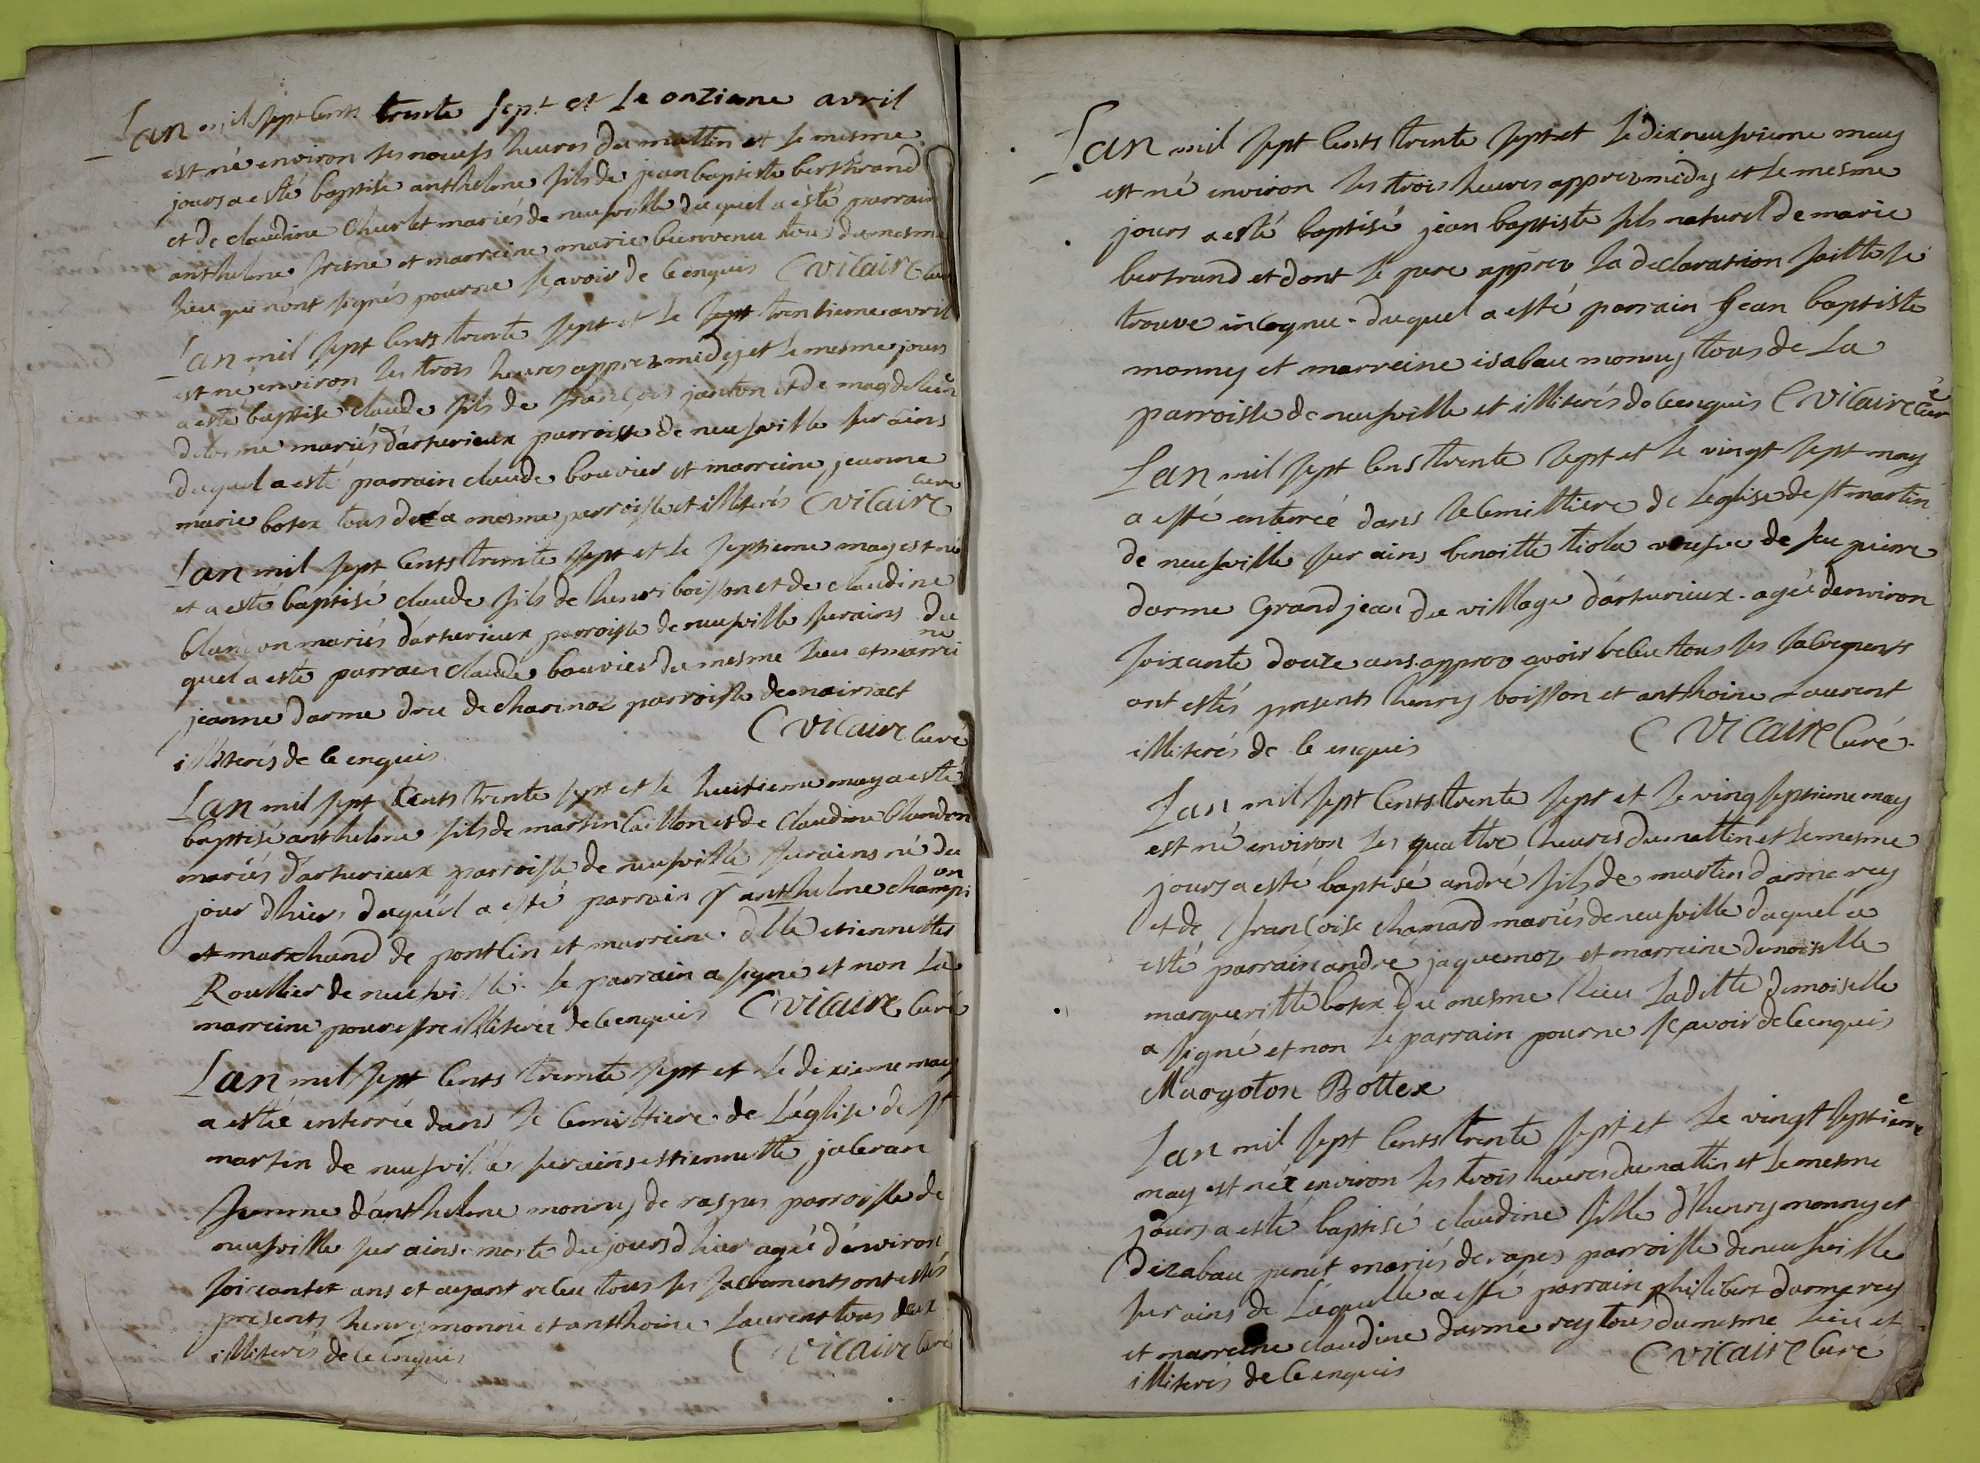 Lan mil sept cents trente sept et le onzieme avril
est né environ les neufs heures du mattin et le mesme
jours a esté baptisé anthelme fils de jean baptiste berthrand
et de claudine Churlet mariés de neufville duquel a esté parrain
anthelme frené et marreine marie bienvenu tous du mesme
lieu qui n'ont signés pour ne sçavoir de ce enquis C vicaire Curé
Lan mil sept cents trente sept et le sept trentieme avril
est né environ les trois heures apprez medy et le mesme jours
a esté baptise claude fils de françois janton et de magdeleine
delorme mariés d'arturieux parroisse de neufville sur ains
duquel a esté parrain claude bouvier et marreine jeanne
marie botex tous de la mesme parroisse et illiterés C vicaire curé
Lan mil sept Cents trente sept et le septieme may est né
et a esté baptisé claude fils de henri boisson et de claudine
blandon mariés d'arturieux parroisse de neufville sur ains du
quel a esté parrain claude bouvier du mesme lieu et marreine
jeanne darme dru de charinaz parroisse de
illiterés de ce enquis C vicaire Curé
Lan mil sept Cents trente sept et le huitieme may a esté
baptisé anthelme fils de martin caillon et de Claudine blandon
mariés d'arturieux parroisse de neufville sur ains né du
jour d'hier, duquel a esté parrain sr anthelme champion
et marchand de pontlin et marreine dlle etiennette
Roullier de neufville. le parrain a signé et non la
marreine pour estre illiterée de ce enquis C vicaire Curé
Lan mil sept Cents trente sept et le dixieme may
a estté enterrée dans le Cemittiere de L'église de st
martin de neufville sur ains estiennette jaleran
femme d'anthelme monny de raspes parroisse de
neufville sur ains morte du jours d'hier agée d'environ
soixante ans et ayant recu tous ses sacraments ont estés
presents henry monni et anthoine Laurent tous deux
illiterés de ce enquis C vicaire Curé
Lan mil sept Cents trente sept et le dix neufvieme may
est né environ les trois heures apprez medy et le mesme
jours a esté baptisé jean baptiste fils naturel de marie
bertrand et dont le pere apprez la declaration faitte se
trouve incognu. duquel a esté parrain Jean baptiste
monny et marreine isabau monny tous de La
parroisse de neufville et illiterés de ce enquis C vicaire Curé
Lan mil sept Cens trente sept et le vingt sept may
a esté enterré dans le Cemittiere de L'eglise de st martin
de neufville sur ains benoitte tiola veufve de feu pierre
darme Grand jean du village d'arturieux. agée denviron
soixante douze ans apprez avoir recu tous ses sacrements
ont estés presents henry boisson et anthoine Laurent
illiterés de ce enquis C vicaire Curé.
Lan mil sept Cents trente sept et le ving septieme may
est né environ les quattre heures du mattin et le mesme
jours a esté baptisé andré fils de martin darme rey
et de françoise chamard mariés de neufville duquel a
esté parrain andre jaquemoz et marreine demoiselle
margueritte botex du mesme lieu Laditte demoiselle
a signé et non le parrain pour ne sçavoir de ce enquis
Margoton Bottex
Lan mil sept Cents trente sept et Le vingt septieme
may est née environ les trois heures du mattin et le mesme
jours a esté baptisé claudine fille d'henry monny et
d'izabau junet mariés de rapes parroisse de neufville
sur ains de Laquelle a esté parrain philibert darme rey
et marreine claudine darme rey tous du mesme Lieu et
illiterés de ce enquis C vicaire Curé